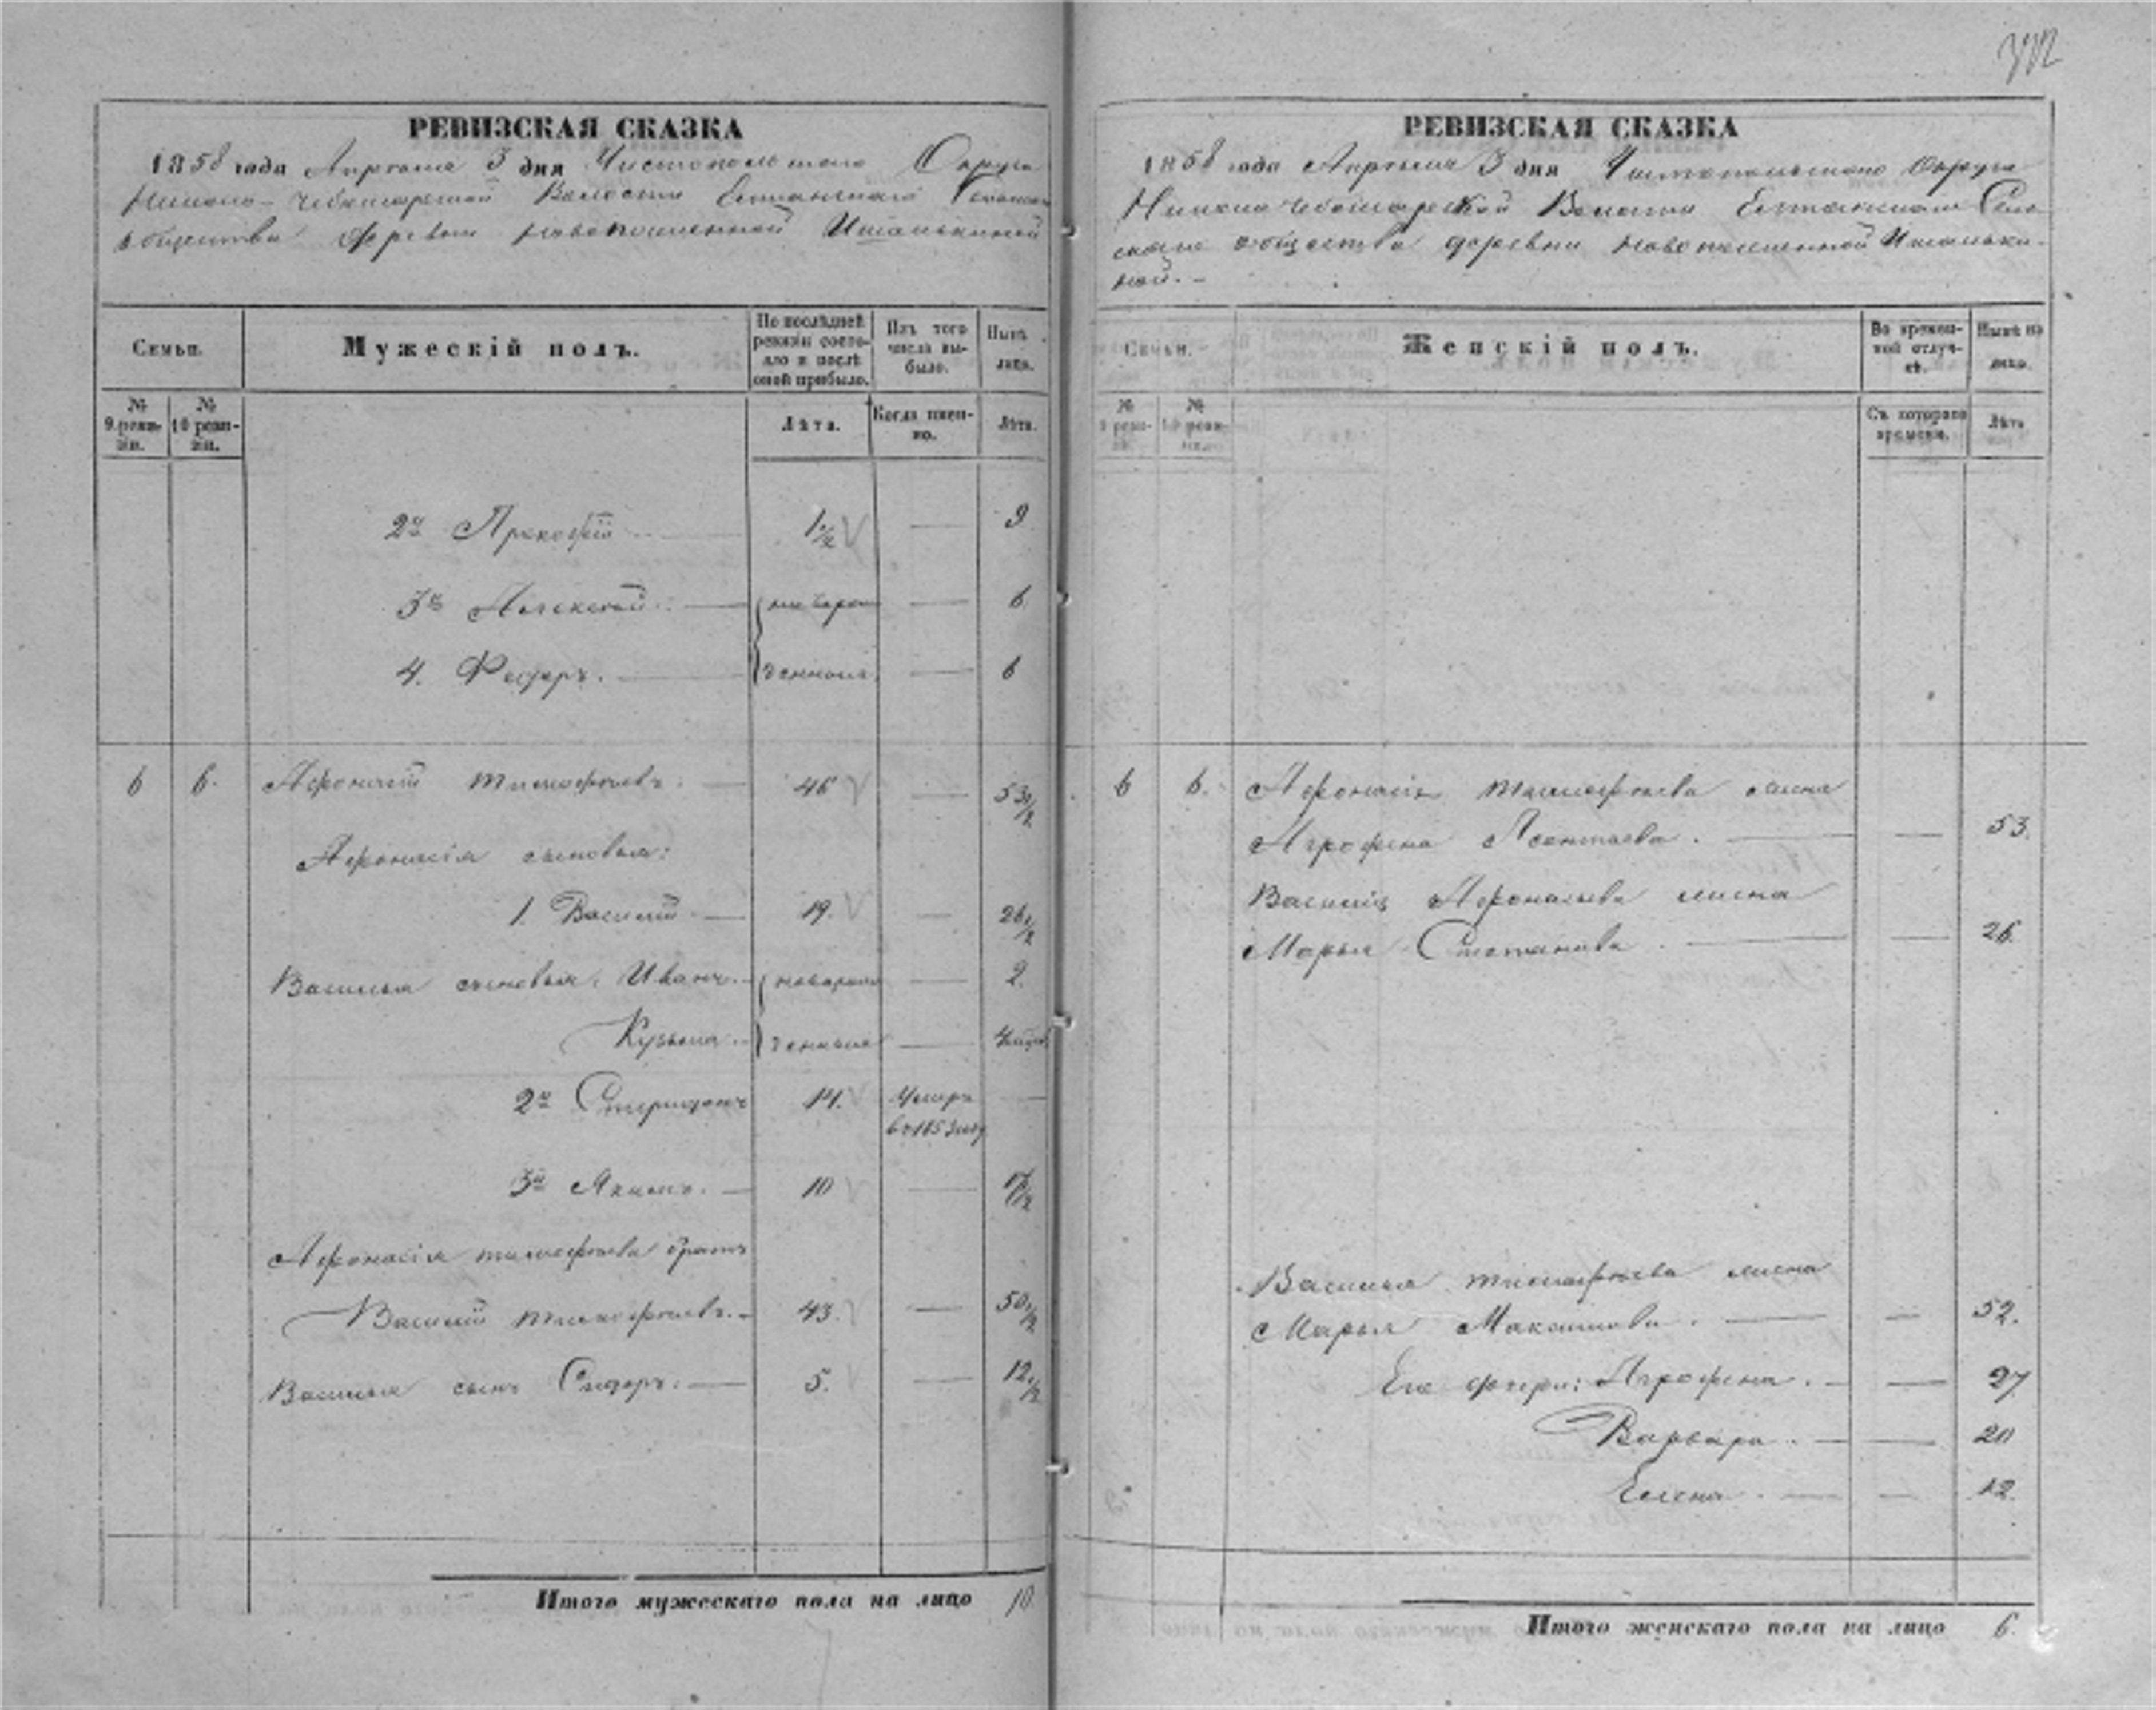 312
РЕВИЗСКАЯ СКАЗКА
1858 года Апреля 3 дня Чистопольскаго Округа
Николо-Чебоксарской Волости Елтанскаго Сельскаго
общества деревни Новопоселенной Ишалькиной
Семьи.
Мужескій полъ.
По послѣдней ревизіи состояло и послѣ оной прибыло.
Изъ того числа выбыло.
Нынѣ на лицо.
№ 9 ревизіи.
№ 10 ревизіи.
Лѣта.
Когда именно.
Лѣта.
2й Прокофій 1 1/2 — 9
3й Алексей новорож — 6
4. Федоръ. денные — 6
6 6. Афонасій Тимофѣевъ. 46 — 53 1/2
Афонасія сыновья:
1. Василій 19. — 26 1/2
Василья сыновья: Иванъ новорож — 2.
Кузьма денные —
2й Спиридонъ 14. Умеръ —
въ 1853 году
3й Якимъ. 10 — 17 1/2
Афонасія Тимофѣева братъ
Василій Тимофѣевъ. 43. — 50 1/2
Василья сынъ Сидоръ. 5. — 12 1/2
Итого мужескаго пола на лицо 10
РЕВИЗСКАЯ СКАЗКА
1858 года Апреля 3 дня Чистопольскаго Округа
Николо Чебоксарской Волости Елтанскаго Сель
скаго общества деревни Новопоселенной Ишальки-
ной.
Семьи.
Женскій полъ.
Во временной отлучкѣ.
Нынѣ на лицо.
№ 9 ревизіи.
№ 10 ревизіи.
Съ котораго времени.
Лѣта
6 6. Афонасія Тимофѣева жена
Агрофена Леонтьева. — 53.
Василія Афонасьева жена
Марья Степанова. — 26.
Василья Тимофѣева жена
Марья Максимова. — 52.
Его дочери: Агрофена. — 27
Варвара. — 20
Елена. — 12.
Итого женскаго пола на лицо 6.